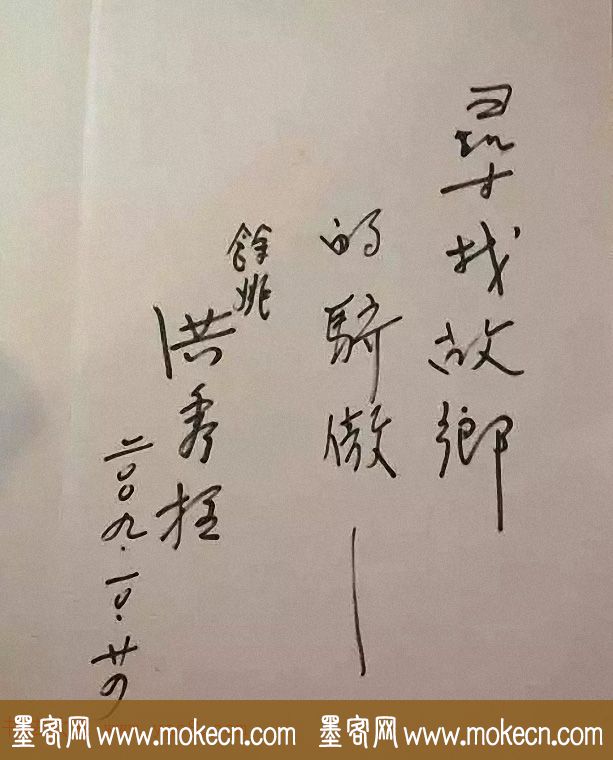 尋找故鄉
的驕傲—
餘姚
洪秀柱
二〇〇九.一〇.廿四
墨客网 www.mokecn.com 墨客网 www.mokecn.com